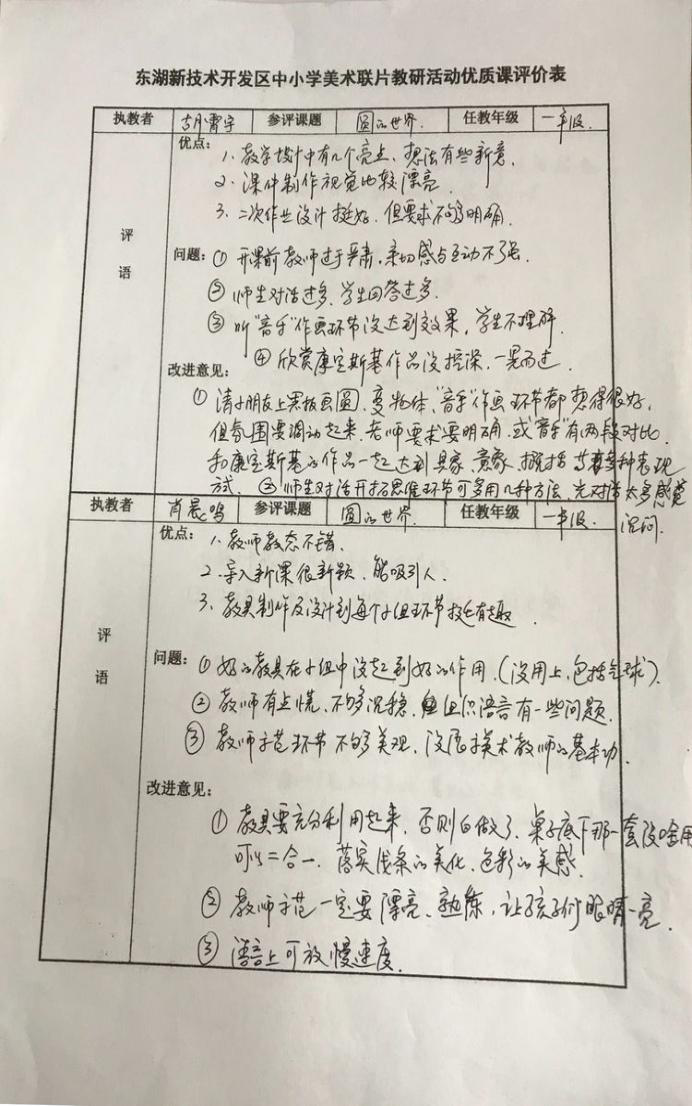 东湖新技术开发区中小学美术联片教研活动优质课评价表
执教者 胡霄宇 参评课题 圆的世界. 任教年级 一年级.
评语
优点:
1. 教学设计中有几个亮点、想法有些新意.
2. 课件制作视觉比较漂亮.
3. 二次作业设计挺好. 但要求不够明确.
问题: ① 开课前教师过于严肃, 亲切感与互动不强.
② 师生对话过多. 学生回答过多.
③ 听“音乐”作画环节没达到效果, 学生不理解.
④ 欣赏康定斯基作品没挖深. 一晃而过.
改进意见:
① 请小朋友上黑板画圆. 变物体、“音乐”作画环节都想得很好.
但氛围要调动起来. 老师要求要明确. 或“音乐”有两段对比.
和康定斯基的作品一起达到具象、意象、概括等多种表现
式. ② 师生对话开拓思维环节可多用几种方法, 光对话太多感觉
沉闷.
执教者 肖晨鸣 参评课题 圆的世界. 任教年级 一年级.
评语
优点: 1. 教师教态不错.
2. 导入新课很新颖. 能吸引人.
3. 教具制作及设计到每个小组环节挺有趣.
问题: ① 好的教具在小组中没起到好的作用. (没用上, 包括气球).
② 教师有点慌. 不够沉稳. 组织语言有一些问题.
③ 教师示范环节不够美观, 没展示美术教师的基本功.
改进意见:
① 教具要充分利用起来. 否则白做了. 桌子底下那一套没啥用
可以二合一. 落实线条的美化. 色彩的美感.
② 教师示范一定要漂亮、熟练, 让孩子们眼睛一亮.
③ 语言上可放慢速度.